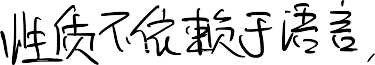 性质不依赖于语言,